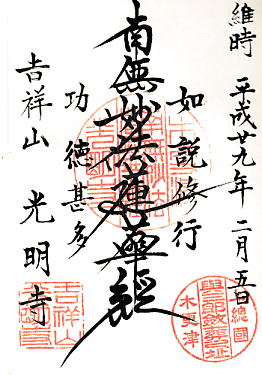 維時 平成廿九年 二月五日
如説修行
南無妙法蓮華経
功徳甚多
吉祥山 光明寺
総國
木更津